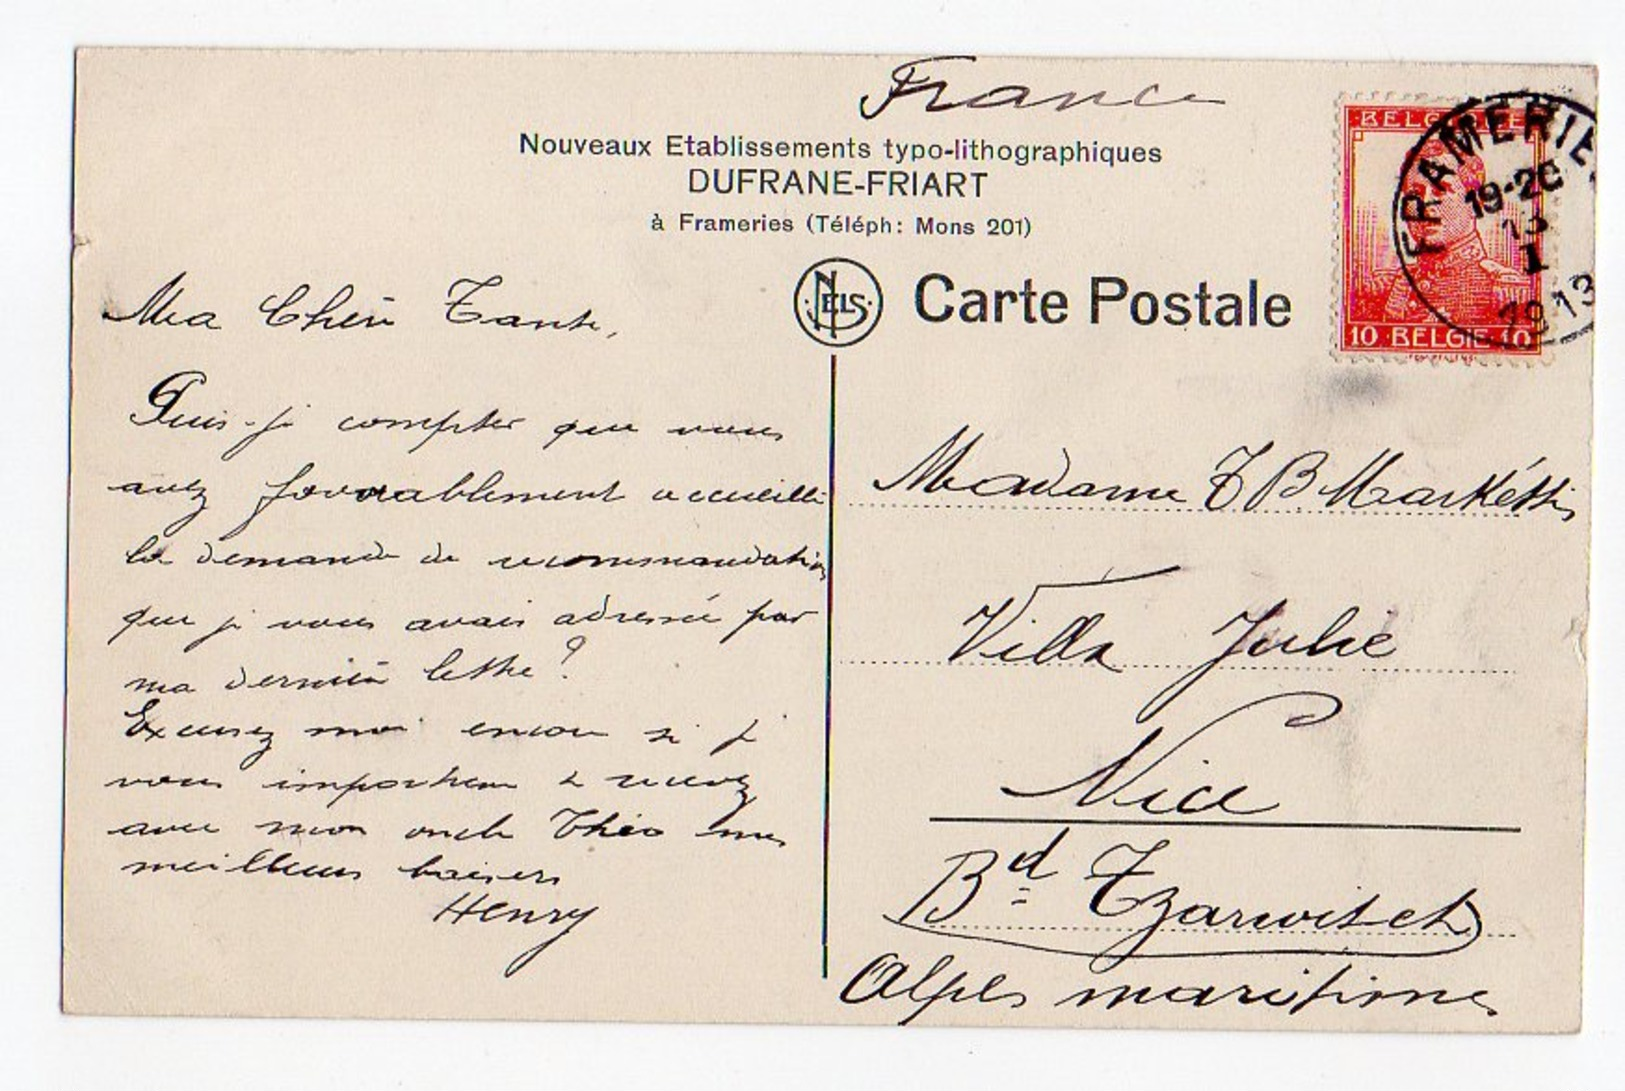 France
Nouveaux Etablissements typo-lithographiques
DUFRANE-FRIART
à Frameries (Téléph: Mons 201)
NELS
Carte Postale
BELGIQUE
10 BELGIE 10
FRAMERIES
19-20
13
1
1913
Ma Chère Tante,
Puis-je compter que vous
avez favorablement accueilli
la demande de recommandation
que je vous avais adressée par
ma dernière lettre ?
Excusez moi encore si je
vous importune & recevez
avec mon oncle Théo mes
meilleurs baisers
Henry
Madame T B Markétti
Villa Julie
Nice
Bd Tzarwitch
Alpes maritimes